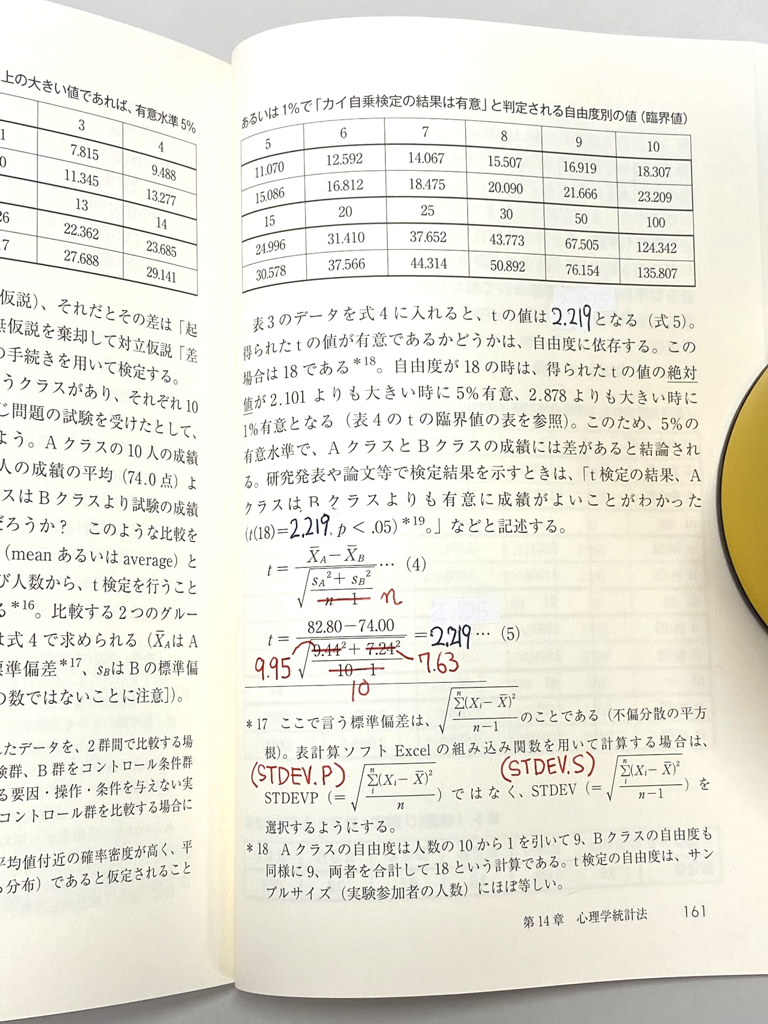 上の大きい値であれば、有意水準5%
3 4
1 7.815 9.488
0 11.345 13.277
13 14
26 22.362 23.685
17 27.688 29.141
仮説)、それだとその差は「起
無仮説を棄却して対立仮説「差
の手続きを用いて検定する。
うクラスがあり、それぞれ10
じ問題の試験を受けたとして、
よう。Aクラスの10人の成績
人の成績の平均(74.0点)よ
スはBクラスより試験の成績
だろうか? このような比較を
(meanあるいはaverage)と
び人数から、t検定を行うこと
る*16。比較する2つのグルー
は式4で求められる(X̄AはA
標準偏差*17、sBはBの標準偏
の数ではないことに注意])。
たデータを、2群間で比較する場
験群、B群をコントロール条件群
る要因・操作・条件を与えない実
コントロール群を比較する場合に
平均値付近の確率密度が高く、平
分布)であると仮定されること
あるいは1%で「カイ自乗検定の結果は有意」と判定される自由度別の値(臨界値)
5 6 7 8 9 10
11.070 12.592 14.067 15.507 16.919 18.307
15.086 16.812 18.475 20.090 21.666 23.209
15 20 25 30 50 100
24.996 31.410 37.652 43.773 67.505 124.342
30.578 37.566 44.314 50.892 76.154 135.807
表3のデータを式4に入れると、tの値は2.219となる(式5)。
得られたtの値が有意であるかどうかは、自由度に依存する。この
場合は18である*18。自由度が18の時は、得られたtの値の絶対
値が2.101よりも大きい時に5%有意、2.878よりも大きい時に
1%有意となる(表4のtの臨界値の表を参照)。このため、5%の
有意水準で、AクラスとBクラスの成績には差があると結論され
る。研究発表や論文等で検定結果を示すときは、「t検定の結果、A
クラスはBクラスよりも有意に成績がよいことがわかった
(t(18)=2.219, p < .05)*19。」などと記述する。
t = (X̄A − X̄B) / √((sA² + sB²) / n − 1) … (4) n
t = (82.80 − 74.00) / √((9.44² + 7.24²) / 10 − 1) = 2.219 … (5)
9.95 7.63
10
*17 ここで言う標準偏差は、√(Σᵢⁿ(Xi − X̄)² / n − 1) のことである(不偏分散の平方
根)。表計算ソフトExcelの組み込み関数を用いて計算する場合は、
(STDEV.P) (STDEV.S)
STDEVP(=√(Σᵢⁿ(Xi − X̄)² / n))ではなく、STDEV(=√(Σᵢⁿ(Xi − X̄)² / n − 1))を
選択するようにする。
*18 Aクラスの自由度は人数の10から1を引いて9、Bクラスの自由度も
同様に9、両者を合計して18という計算である。t検定の自由度は、サン
プルサイズ(実験参加者の人数)にほぼ等しい。
第14章 心理学統計法 161